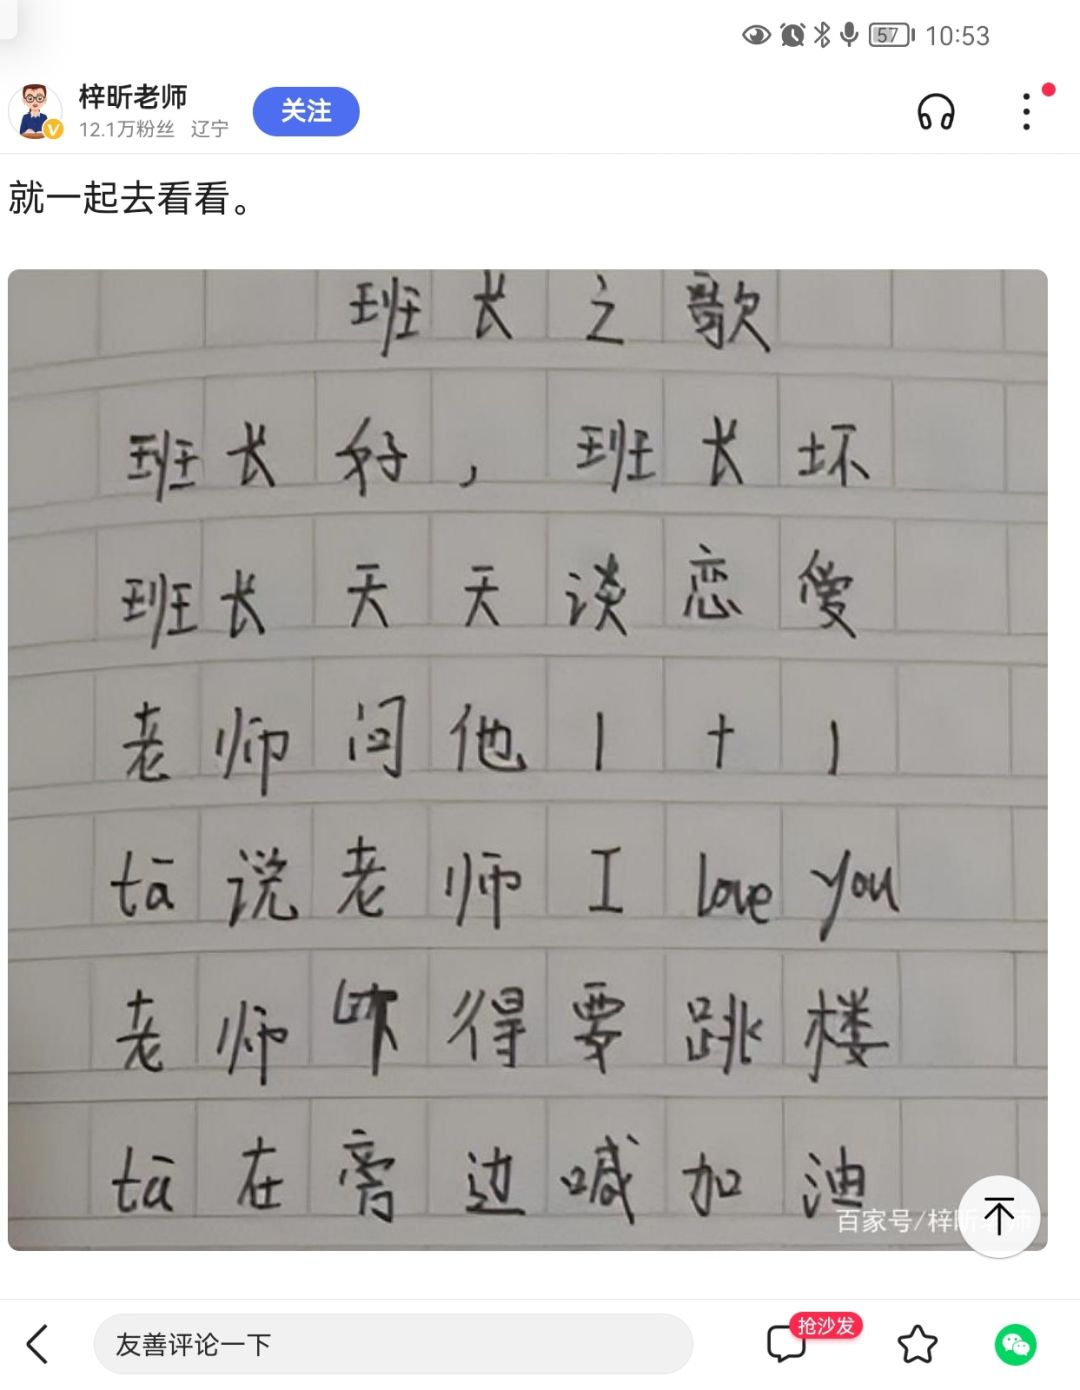 57 10:53
梓昕老师
12.1万粉丝 辽宁
关注
就一起去看看。
班长之歌
班长好，班长坏
班长天天谈恋爱
老师问他1+1
tā说老师I love you
老师 得要跳楼
tā在旁边喊加油
百家号/梓昕老师
友善评论一下
抢沙发